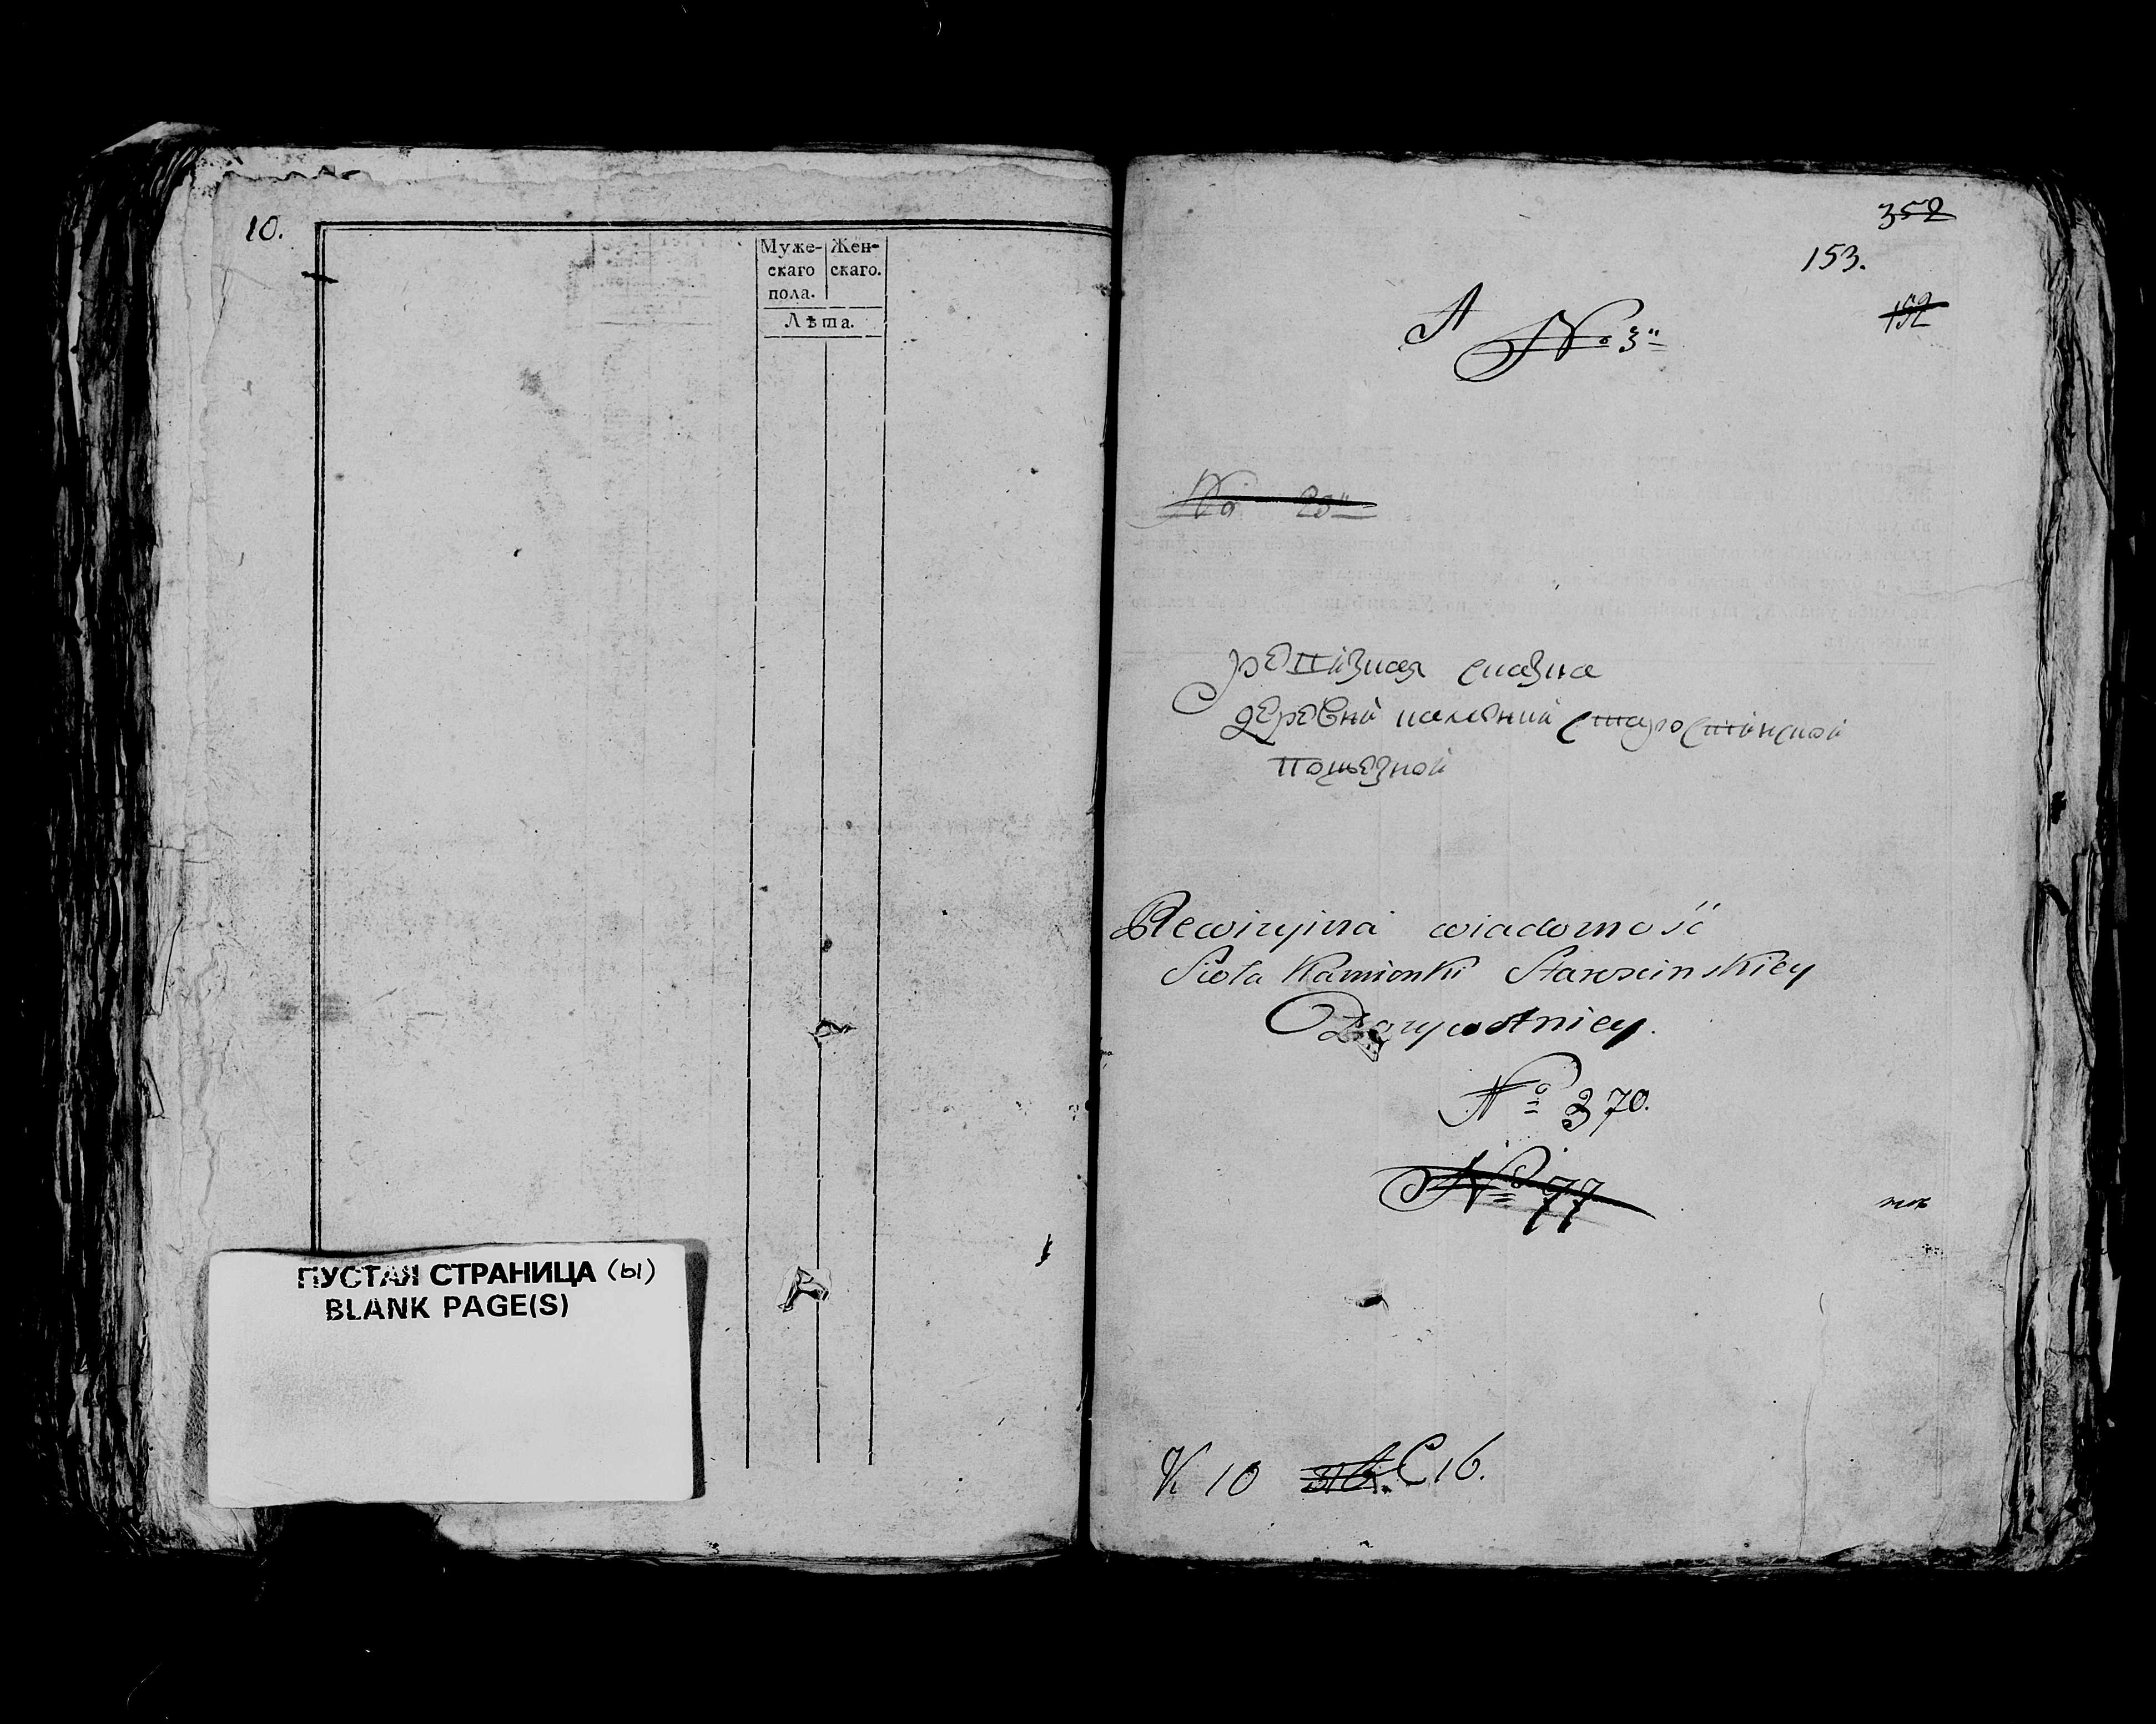 10.
Муже- Жен-
скаго скаго.
пола.
Лѣта.
ПУСТАЯ СТРАНИЦА (ы)
BLANK PAGE(S)
352
153.
152
А
№ 3
№ 23
ревизная сказка
деревни каменки старостинской
Rewizyjna wiadomość
Sioła Kamionki Starościnskiey
Dożywotniey.
№ 370.
№ 77
K 10 C 16.